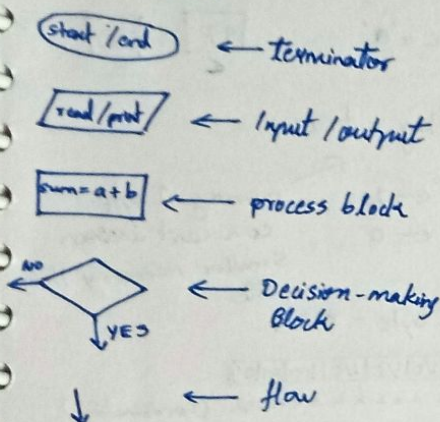 start /end ← terminator
read/print ← Input /output
sum=a+b ← process block
NO
← Decision-making
Block
YES
← flow